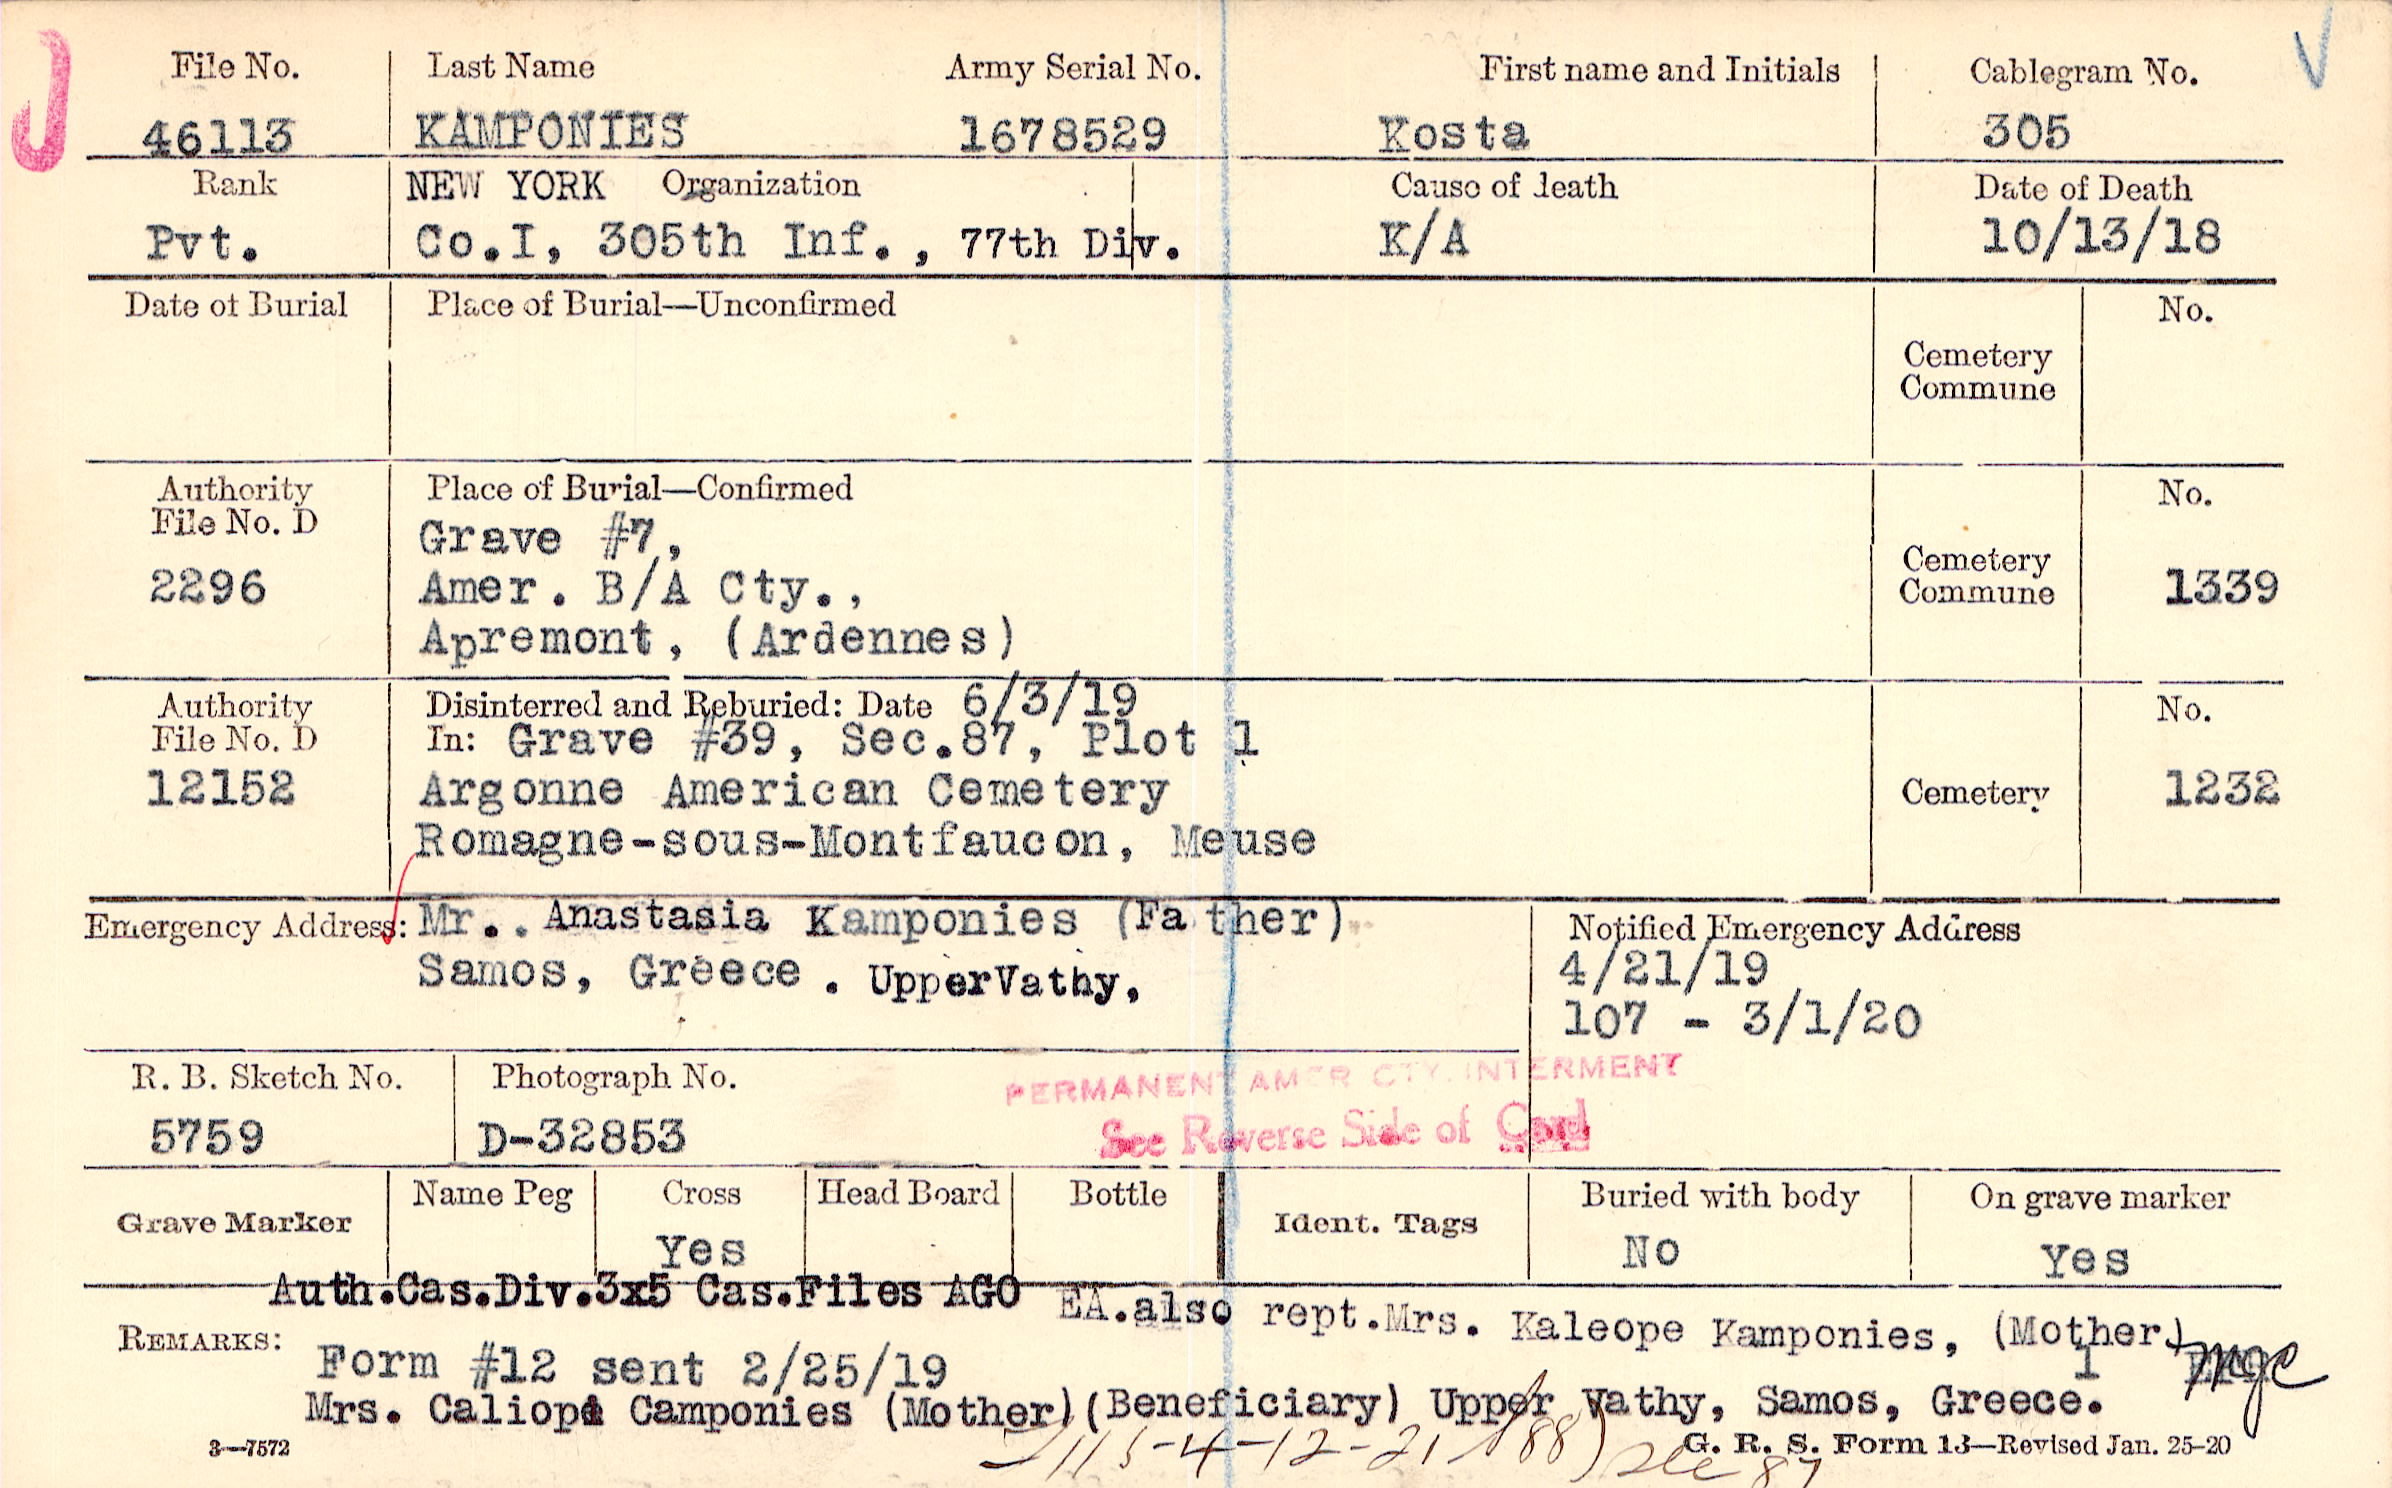 File No. Last Name Army Serial No. First name and Initials Cablegram No.
46113 KAMPONIES 1678529 Kosta 305
Rank NEW YORK Organization Cause of death Date of Death
Pvt. Co.I, 305th Inf., 77th Div. K/A 10/13/18
Date of Burial Place of Burial—Unconfirmed No.
Cemetery
Commune
Authority Place of Burial—Confirmed No.
File No. D Grave #7,
2296 Amer. B/A Cty., Cemetery Commune 1339
Apremont, (Ardennes)
Authority Disinterred and Reburied: Date 6/3/19 No.
File No. D In: Grave #39, Sec.87, Plot 1
12152 Argonne American Cemetery Cemetery 1232
Romagne-sous-Montfaucon, Meuse
Emergency Address: Mr.. Anastasia Kamponies (Father) Notified Emergency Address
Samos, Greece. UpperVathy, 4/21/19
107 - 3/1/20
R. B. Sketch No. Photograph No. PERMANENT AMER CTY. INTERMENT
5759 D-32853 See Reverse Side of Card
Grave Marker Name Peg Cross Head Board Bottle Ident. Tags Buried with body On grave marker
Yes No Yes
Auth.Cas.Div.3x5 Cas.Files AGO EA.also rept.Mrs. Kaleope Kamponies, (Mother)
REMARKS: Form #12 sent 2/25/19 1 mgc
Mrs. Caliope Camponies (Mother)(Beneficiary) Upper Vathy, Samos, Greece.
3—7572 G. R. S. Form 13—Revised Jan. 25-20